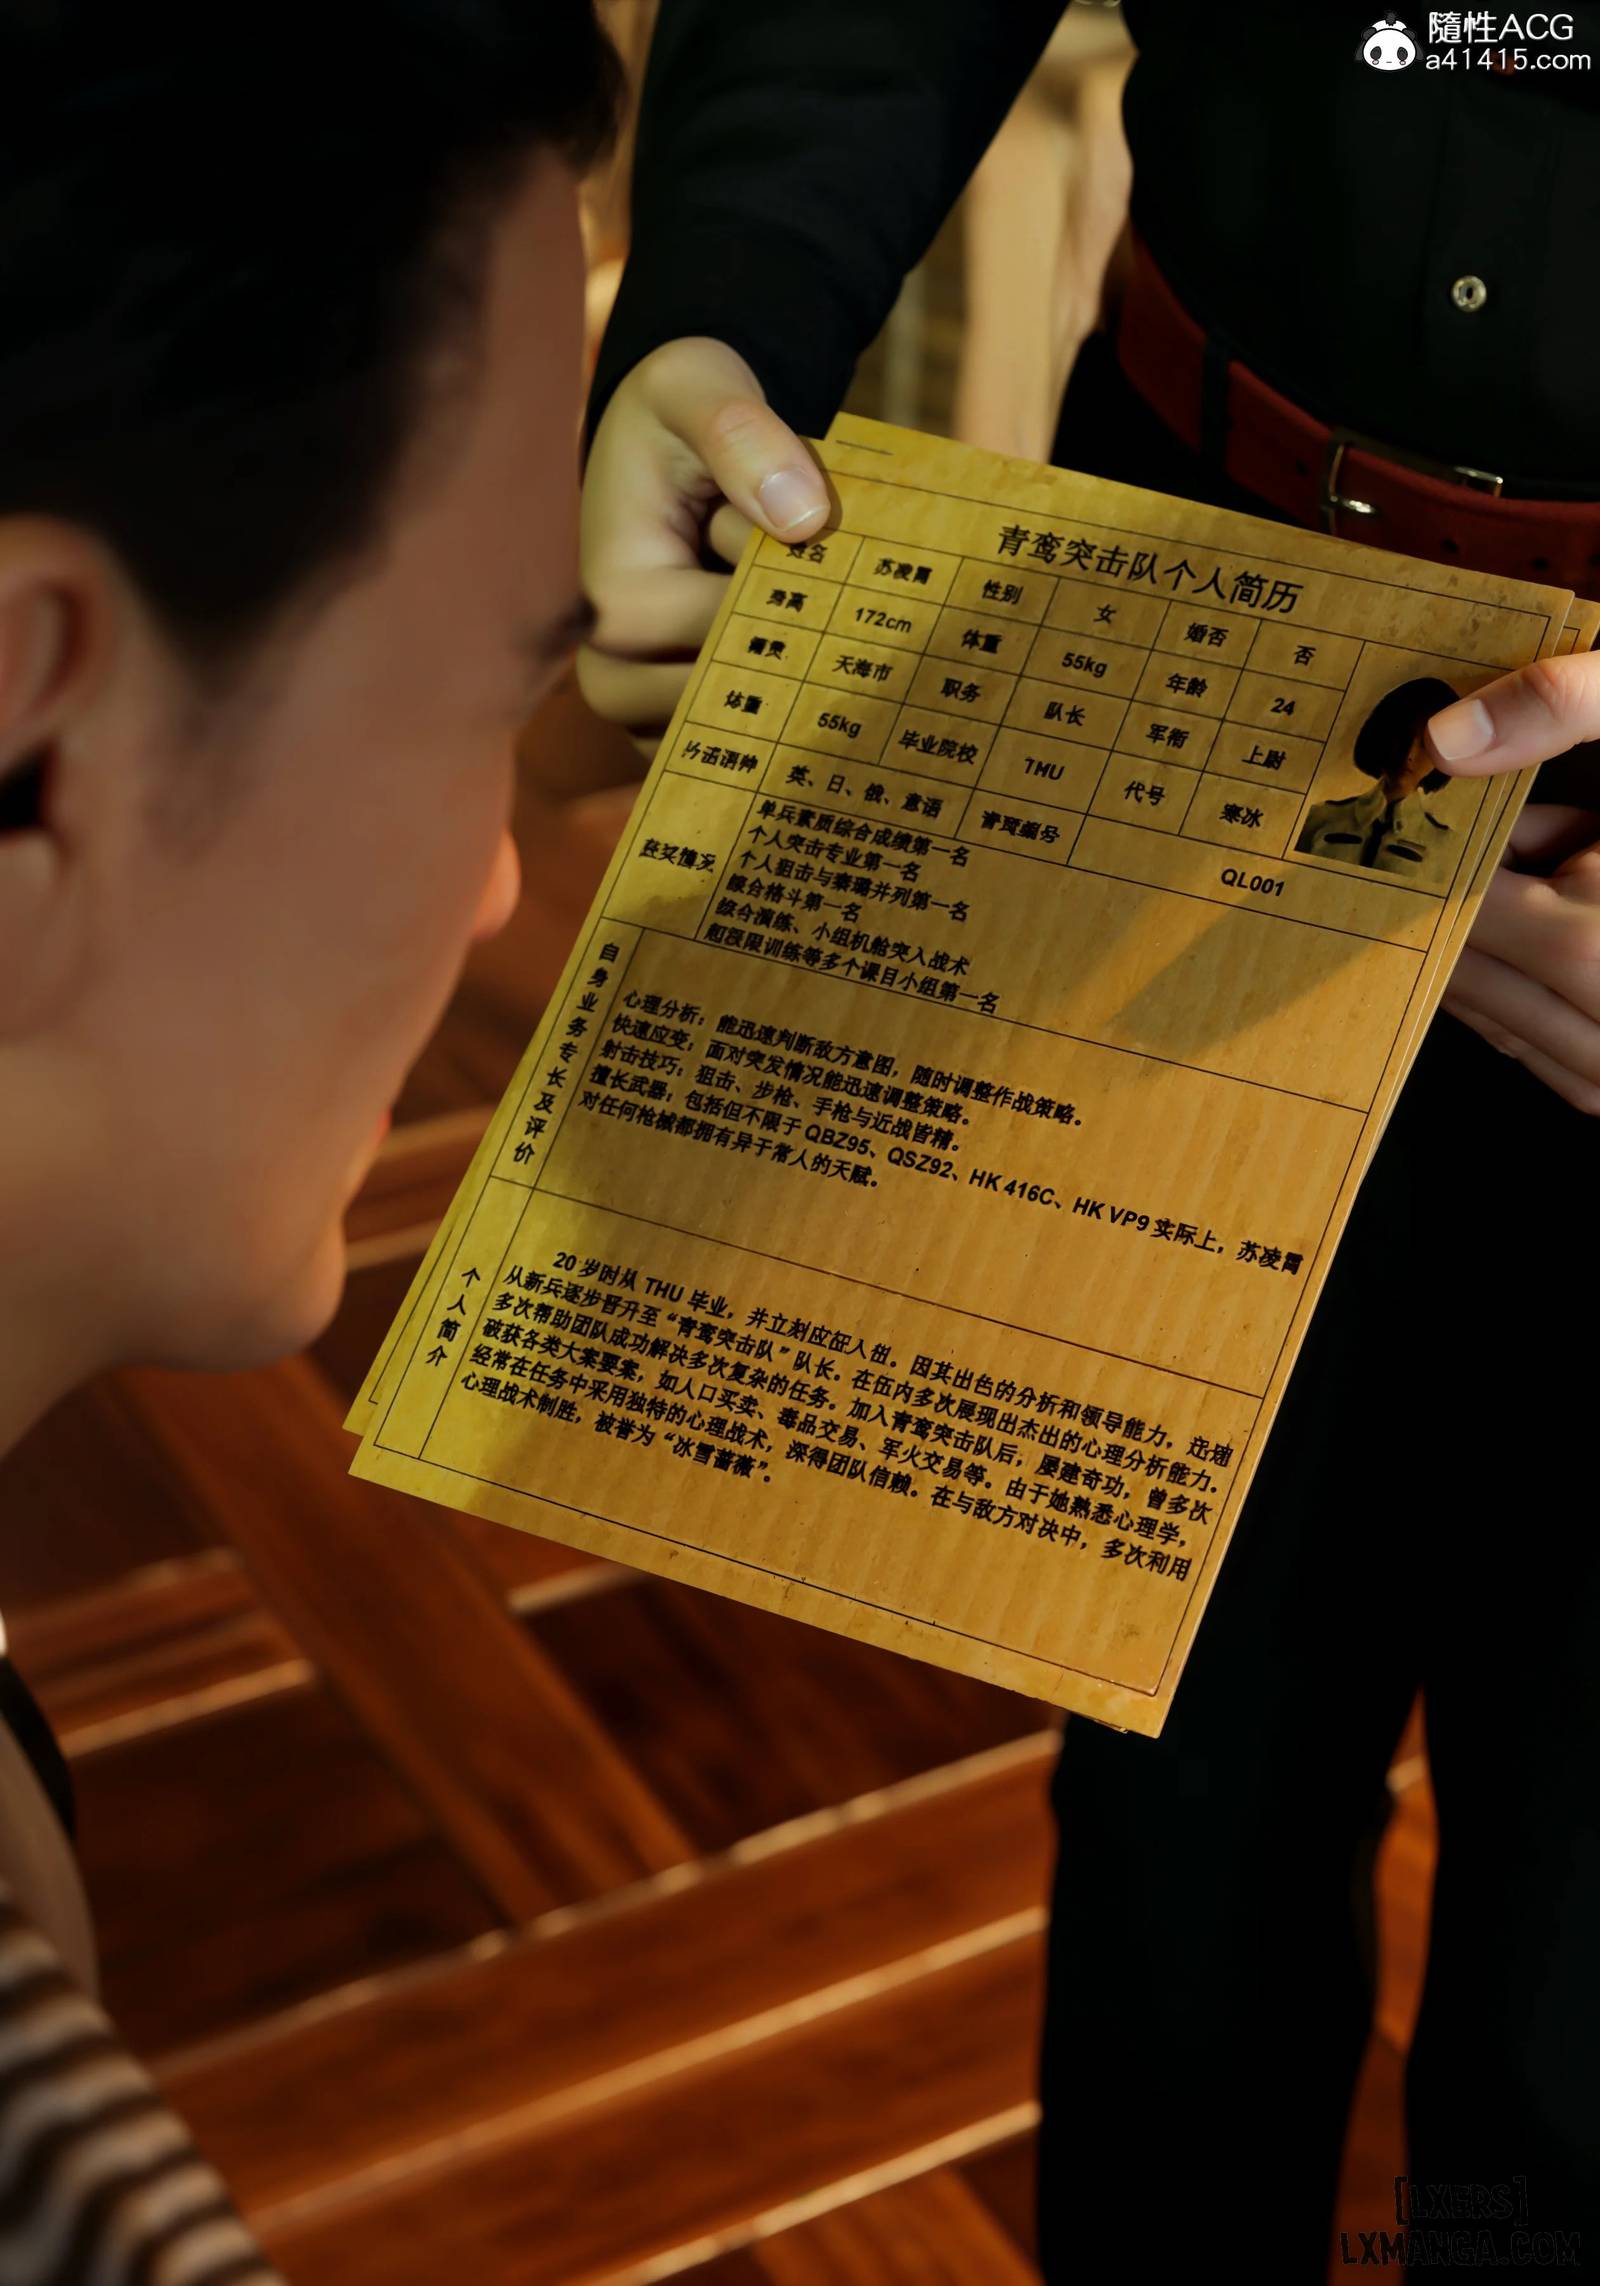 隨性ACG
a41415.com
青鸾突击队个人简历
姓名 苏凌霄 性别 女 婚否 否
身高 172cm 体重 55kg 年龄 24
籍贯 天海市 职务 队长 军衔 上尉
体重 55kg 毕业院校 THU 代号 寒冰
英、日、俄、意语 QL001
获奖情况
单兵素质综合成绩第一名
个人突击专业第一名
个人狙击与秦璐并列第一名
综合格斗第一名
综合演练、小组机舱突入战术
超极限训练等多个课目小组第一名
自身业务专长及评价
心理分析：能迅速判断敌方意图，随时调整作战策略。
快速应变：面对突发情况能迅速调整策略。
射击技巧：狙击、步枪、手枪与近战皆精。
擅长武器：包括但不限于 QBZ95、QSZ92、HK 416C、HK VP9 实际上，苏凌霄
对任何枪械都拥有异于常人的天赋。
个人简介
20 岁时从 THU 毕业，并立刻应征入伍。因其出色的分析和领导能力，迅速
从新兵逐步晋升至“青鸾突击队”队长。在伍内多次展现出杰出的心理分析能力。
多次帮助团队成功解决多次复杂的任务。加入青鸾突击队后，屡建奇功，曾多次
破获各类大案要案，如人口买卖、毒品交易、军火交易等。由于她熟悉心理学，
经常在任务中采用独特的心理战术，深得团队信赖。在与敌方对决中，多次利用
心理战术制胜，被誉为“冰雪蔷薇”。
[LXERS]
LXMANGA.COM